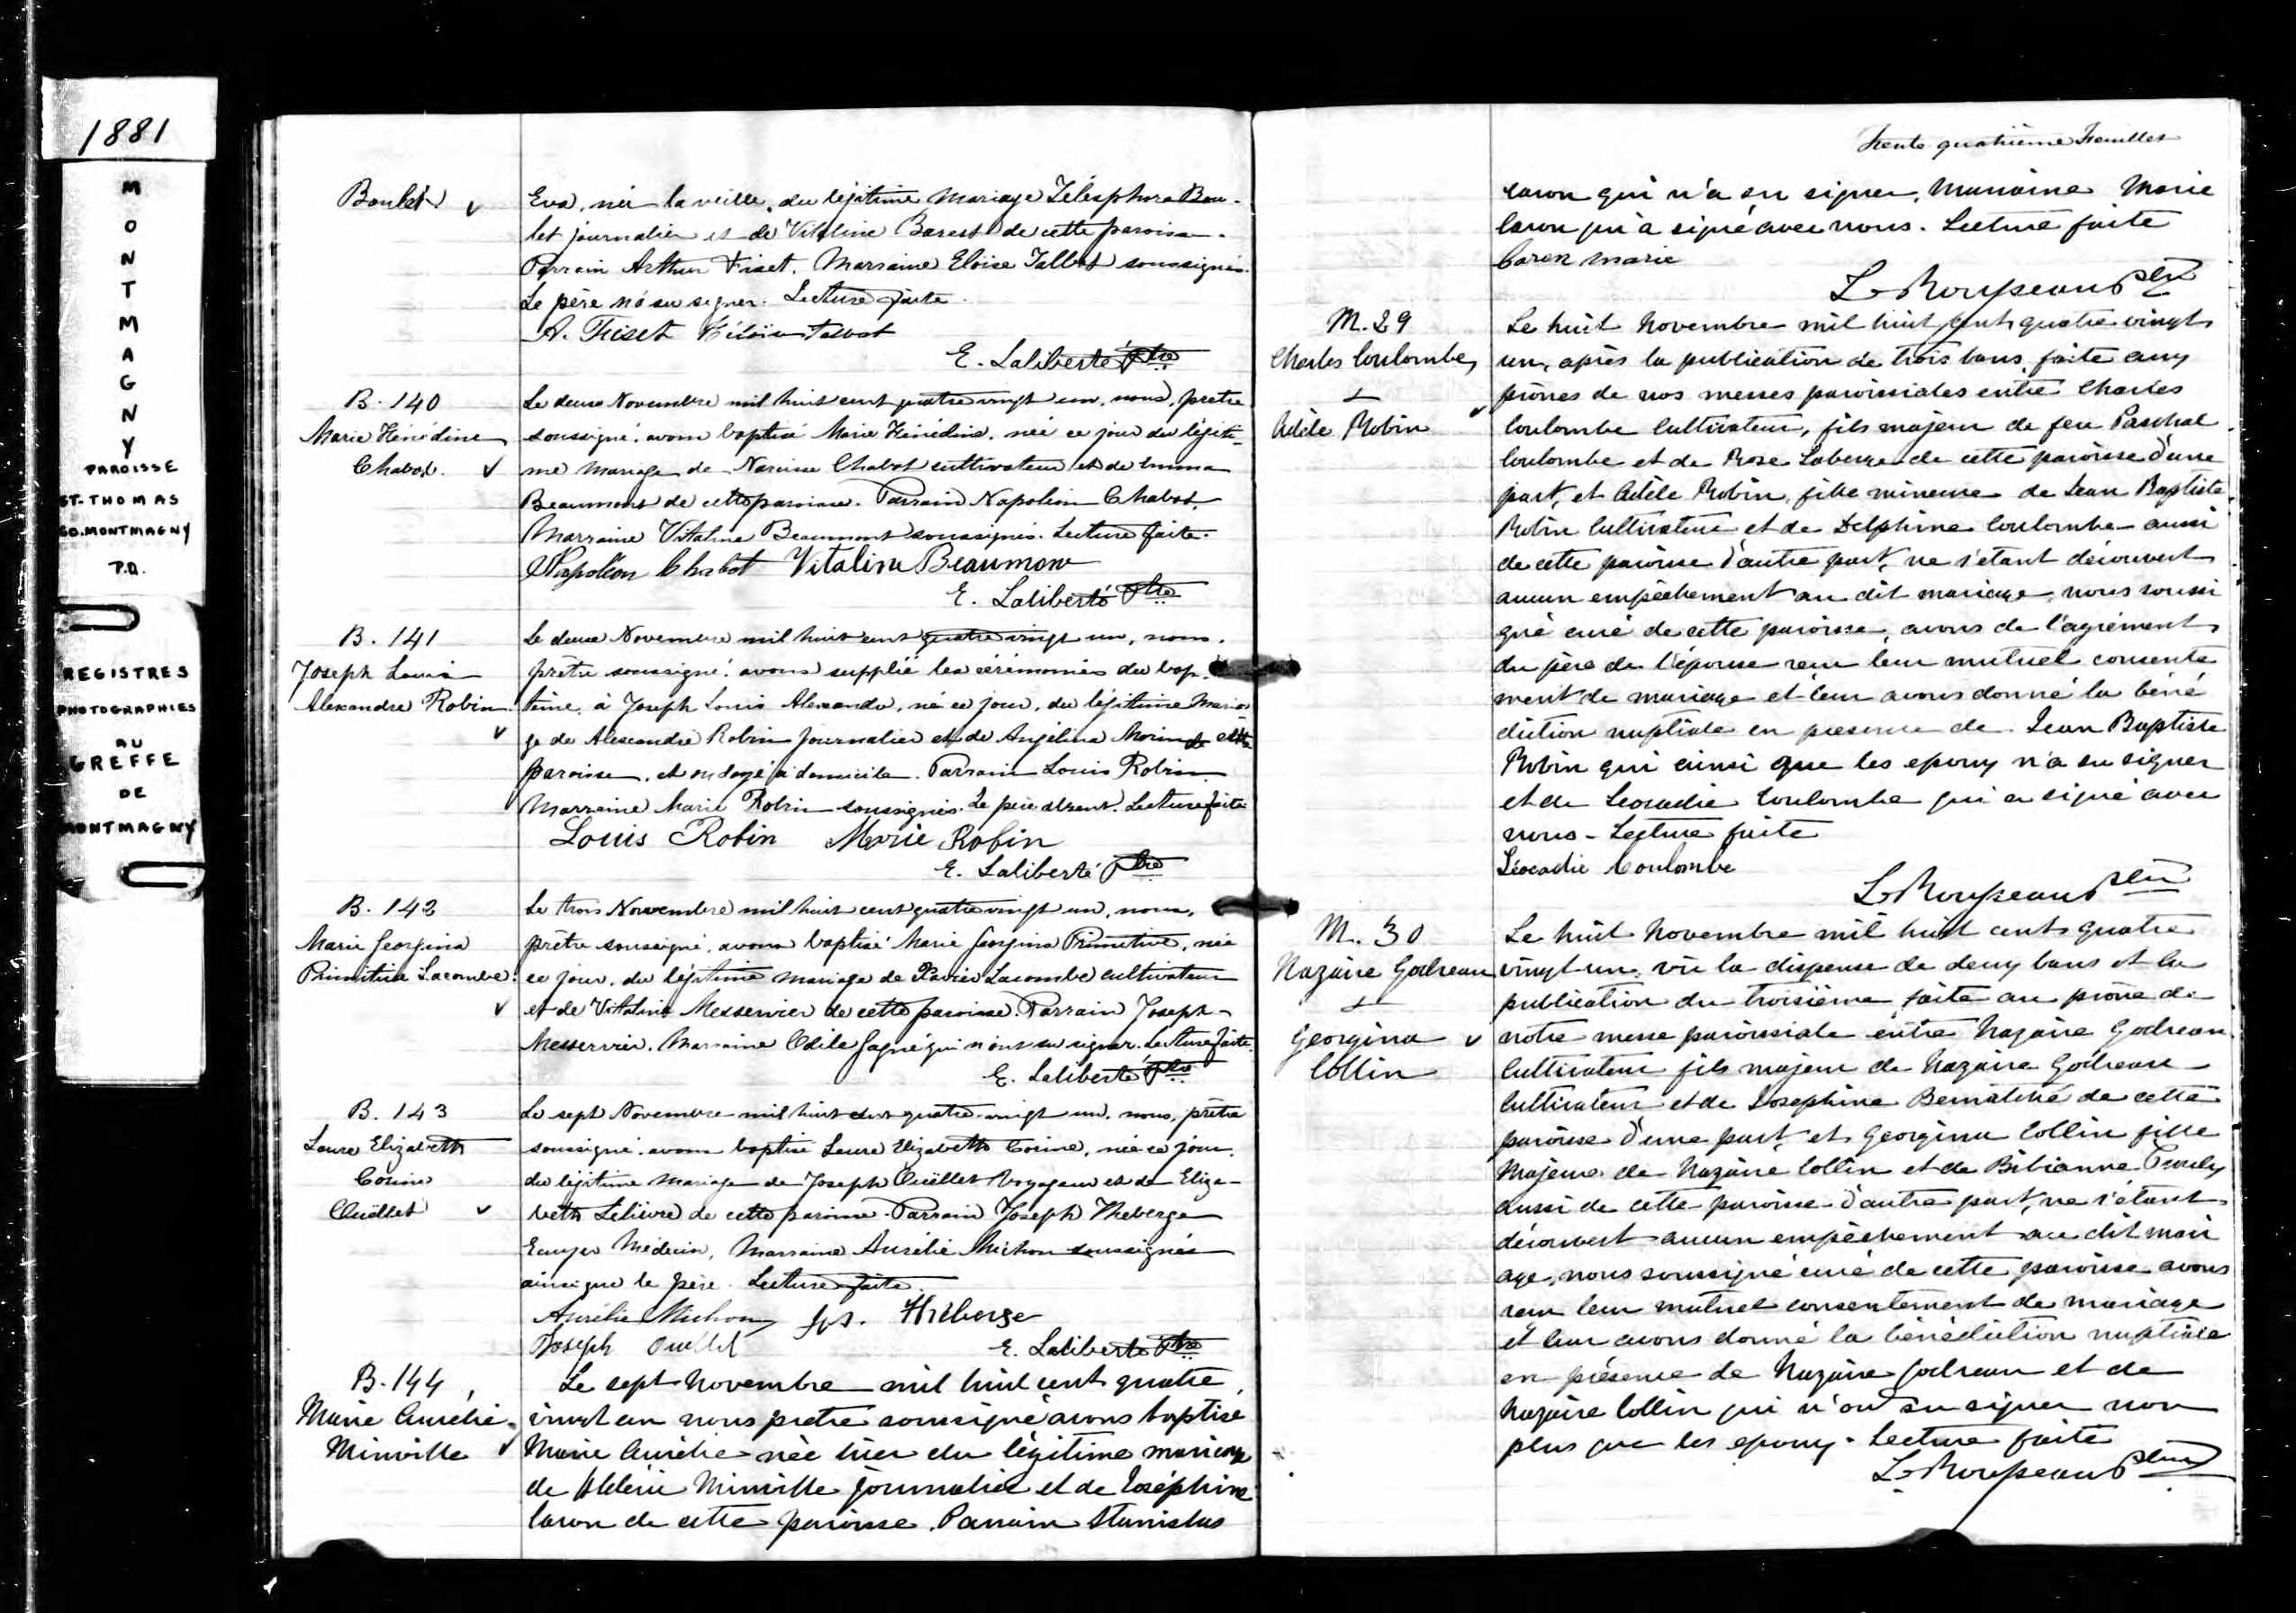 1881
MONTMAGNY
PAROISSE
ST. THOMAS
CO. MONTMAGNY
P.Q.
REGISTRES
PHOTOGRAPHIES
AU
GREFFE
DE
MONTMAGNY
Boulet
Eva, née la veille, du légitime mariage Télesphore Bou-
let journalier et de Vitaline Barest de cette paroisse.
Parrain Arthur Fiset. Marraine Eloïse Talbot soussignés.
Le père n'a su signer. Lecture faite.
A. Fiset Héloïse Talbot
E. Laliberté Ptre
B. 140
Marie Hénédine
Chabot.
Le deux Novembre mil huit cent quatre vingt un, nous, prêtre
soussigné, avons baptisé Marie Hénédine, née ce jour du légiti-
me mariage de Narcisse Chabot cultivateur et de Emma
Beaumont de cette paroisse. Parrain Napoléon Chabot,
Marraine Vitaline Beaumont soussignés. Lecture faite.
Napoléon Chabot Vitaline Beaumont
E. Laliberté Ptre
B. 141
Joseph Louis
Alexandre Robin.
Le deux Novembre mil huit cent quatre vingt un, nous,
prêtre soussigné, avons supplié les cérémonies du bap-
tême, à Joseph Louis Alexandre, né ce jour, du légitime Maria-
ge de Alexandre Robin journalier et de Angélina Morin de cette
paroisse, et ondoyé à domicile. Parrain Louis Robin.
Marraine Marie Robin soussignés. Le père absent. Lecture faite
Louis Robin Marie Robin
E. Laliberté Ptre
B. 142
Marie Georgina
Primitive Lacombe.
Le trois Novembre mil huit cent quatre vingt un, nous,
prêtre soussigné, avons baptisé Marie Georgina Primitive, née
ce jour, du légitime mariage de Xavier Lacombe cultivateur
et de Vitaline Messervier de cette paroisse. Parrain Joseph
Messervier. Marraine Odile Gagné qui n'ont su signer. Lecture faite.
E. Laliberté Ptre
B. 143
Laure Elizabeth
Corine
Ouëllet
Le sept Novembre mil huit cent quatre-vingt un, nous, prêtre
soussigné, avons baptisé Laure Elizabeth Corine, née ce jour,
du légitime mariage de Joseph Ouëllet Voyageur et de Eliza-
beth Lelièvre de cette paroisse. Parrain Joseph Theberge
Ecuyer Médecin, Marraine Aurélie Michon soussignés
ainsi que le père. Lecture faite.
Aurélie Michon Jos. Théberge
Joseph Ouellet
E. Laliberté Ptre
B. 144
Marie Aurélie
Minville
Le sept Novembre mil huit cent quatre
vingt un nous prêtre soussigné avons baptisé
Marie Aurélie née hier du légitime mariage
de Minville journalier et de Joséphine
Caron de cette paroisse. Parrain Stanislas
Trente quatrième Feuillet
Caron qui n'a su signer, Marraine Marie
Caron qui a signé avec nous. Lecture faite
Caron Marie
L. Rousseau Ptre
M. 29
Charles Coulombe
&
Adèle Robin
Le huit Novembre mil huit cent quatre vingt
un, après la publication de trois bans, faite aux
prônes de nos messes paroissiales entre Charles
Coulombe cultivateur, fils majeur de feu Paschal
Coulombe et de Rose Laberge de cette paroisse d'une
part, et Adèle Robin, fille mineure de Jean Baptiste
Robin cultivateur et de Delphine Coulombe aussi
de cette paroisse d'autre part, ne s'étant découvert
aucun empêchement au dit mariage, nous soussi
gné curé de cette paroisse, avons de l'agrément
du père de l'épouse reçu leur mutuel consente
ment de mariage et leur avons donné la béné
diction nuptiale en présence de Jean Baptiste
Robin qui ainsi que les epoux n'a su signer
et de Leocadie Coulombe qui a signé avec
nous - Lecture faite
Léocadie Coulombe
L. Rousseau Ptre
M. 30
Nazaire Godreau
&
Georgina
Collin
Le huit Novembre mil huit cent quatre
vingt un, vu la dispense de deux bans et la
publication du troisième, faite au prône de
notre messe paroissiale entre Nazaire Godreau
cultivateur fils majeur de Nazaire Godreau
cultivateur et de Josephine Bernatché de cette
paroisse d'une part, et Georgina Collin fille
majeure de Nazaire Collin et de Bibianne
aussi de cette paroisse d'autre part, ne s'étant
découvert aucun empêchement au dit mari
age, nous soussigné curé de cette paroisse avons
reçu leur mutuel consentement de mariage
et leur avons donné la bénédiction nuptiale
en présence de Nazaire Godreau et de
Nazaire Collin qui n'ont su signer non
plus que les epoux. Lecture faite
L. Rousseau Ptre